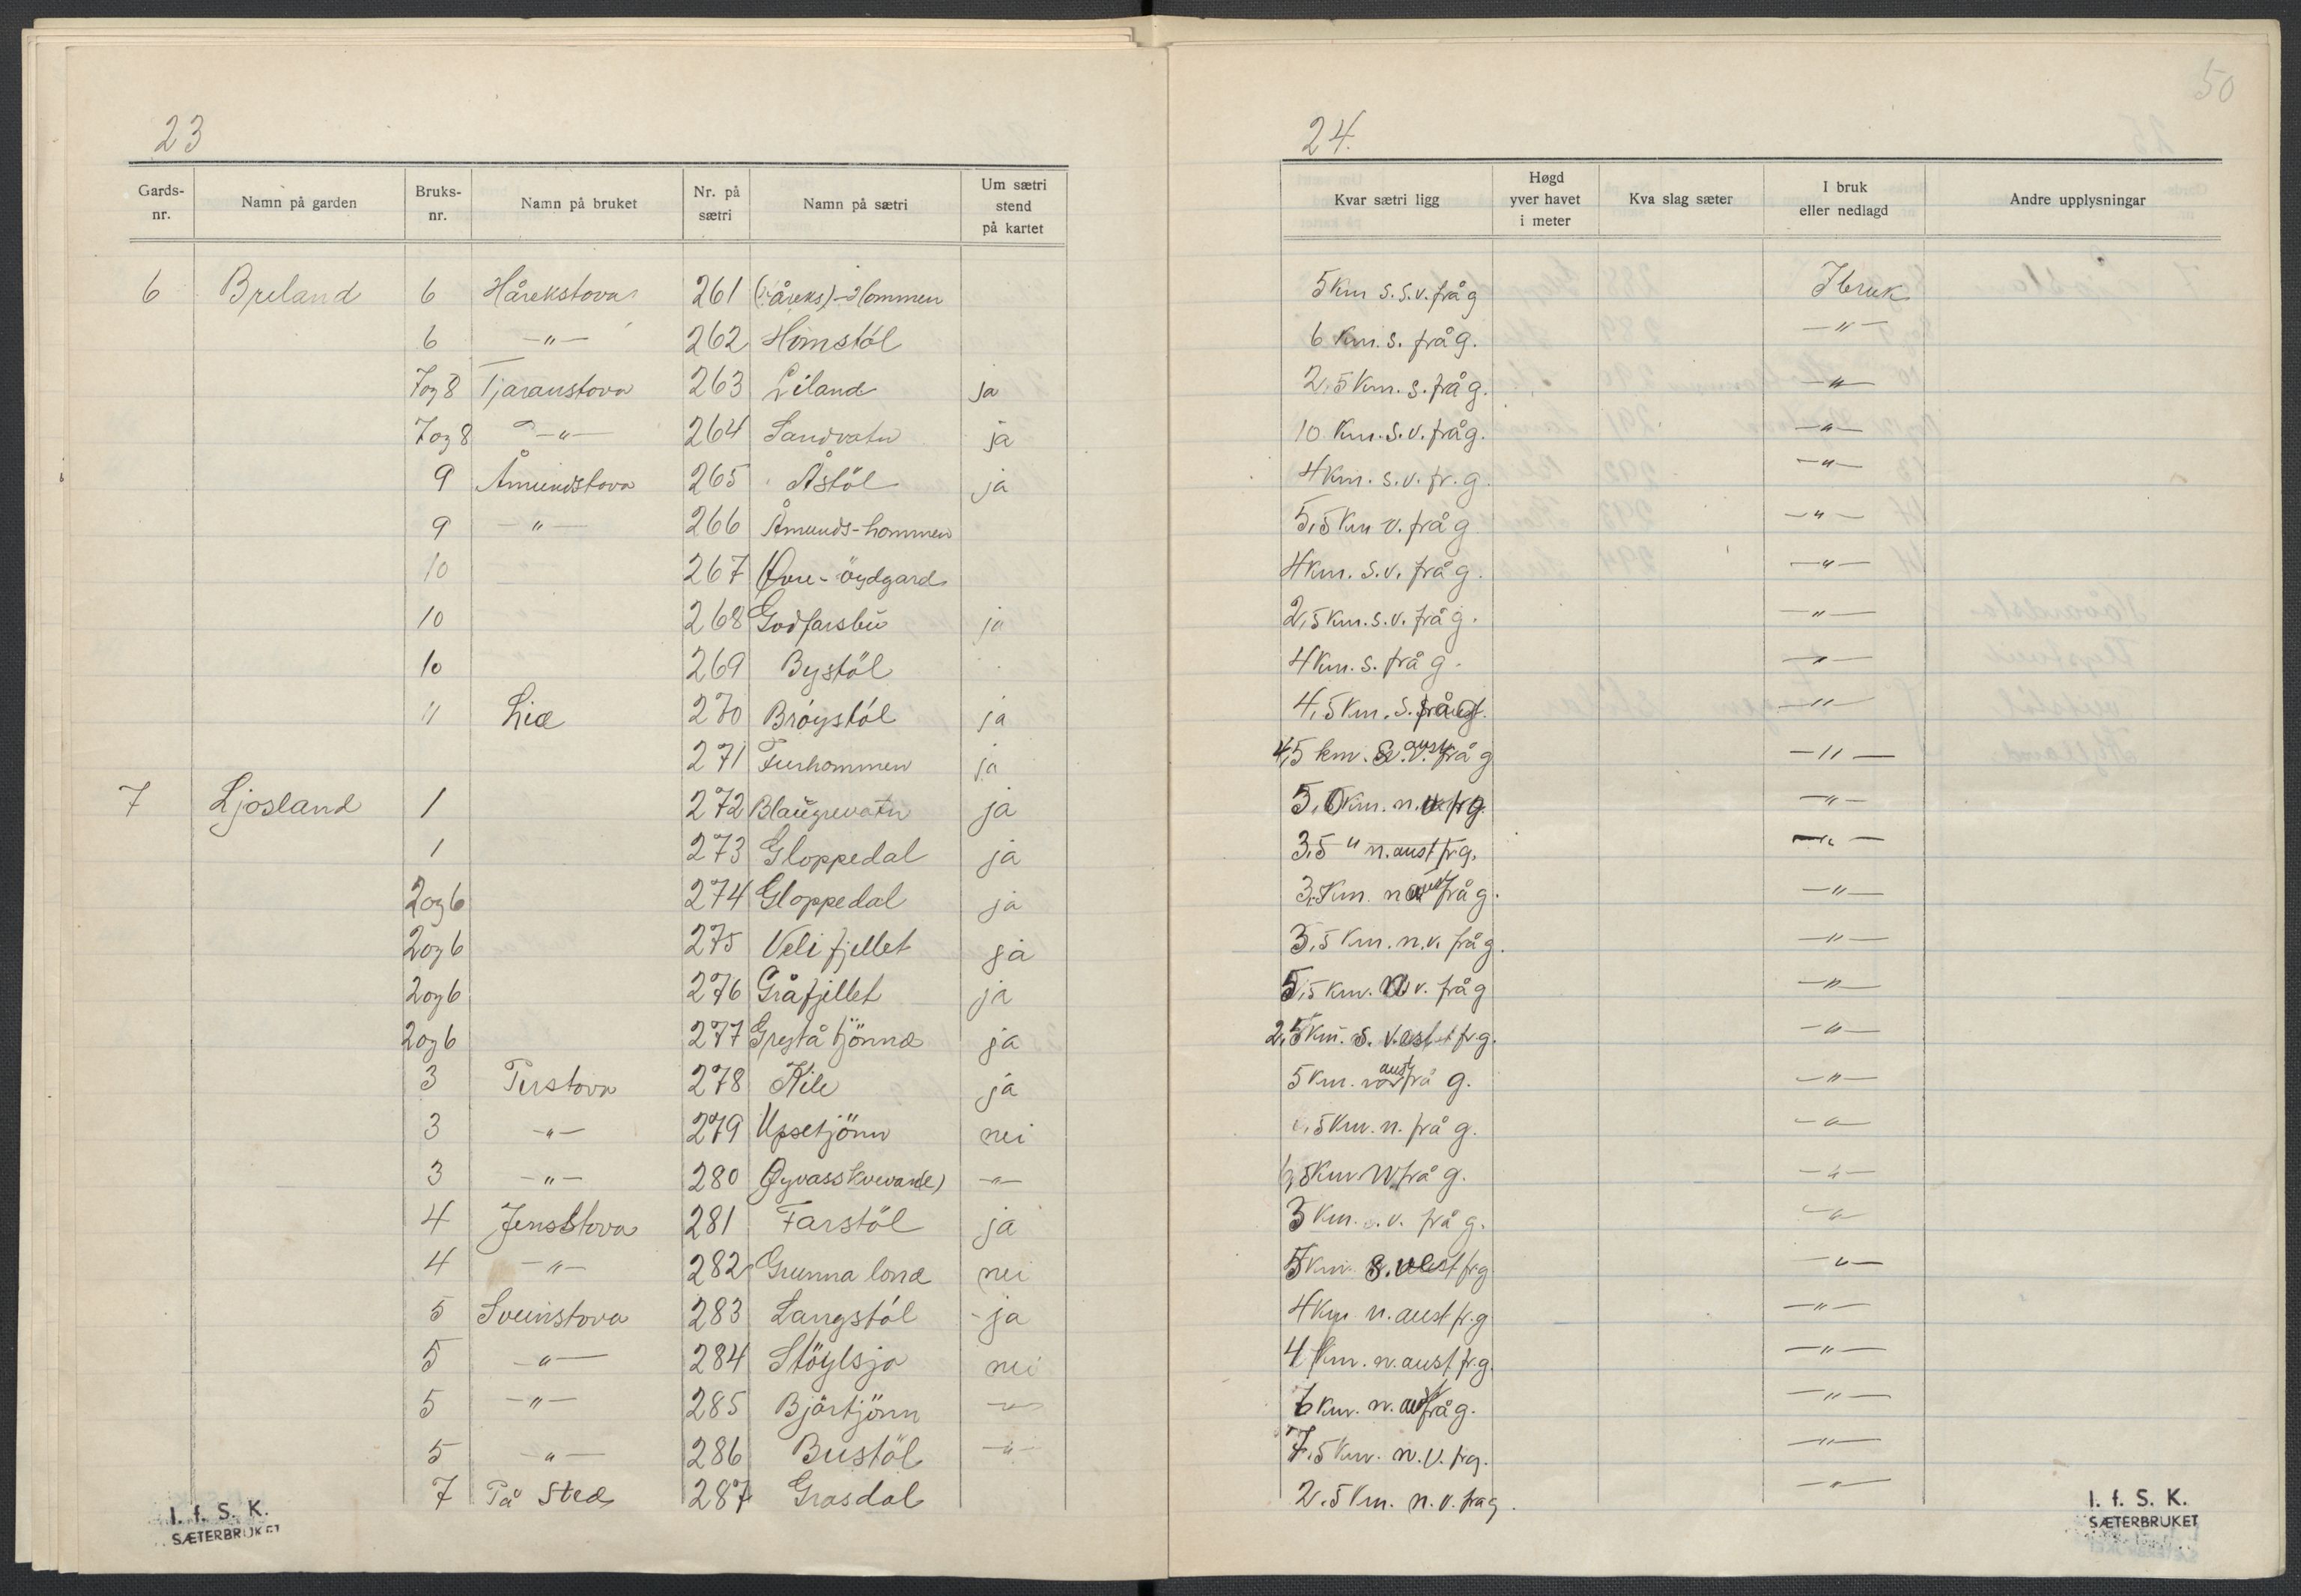 23
Gards-nr. Namn på garden Bruks-nr. Namn på bruket Nr. på sætri Namn på sætri Um sætri stend på kartet
6 Breland 6 Hårekstova 261 (Håreks)-Hommen
6 -"- 262 Homstöl
7 og 8 Tjaranstova 263 Liland ja
7 og 8 -"- 264 Sandvatn ja
9 Åmundstova 265 Åstöl ja
9 -"- 266 Åmunds-hommen
10 267 Øvre-öydgard
10 268 Godfarsbu ja
10 269 Bystöl
11 Lia 270 Bröystöl ja
271 Furhommen ja
7 Ljosland 1 272 Blaugrevatn ja
1 273 Gloppedal ja
2 og 6 274 Gloppedal ja
2 og 6 275 Veli fjellet ja
2 og 6 276 Gråfjellet ja
2 og 6 277 Greytå tjönna ja
3 Perstova 278 Kile ja
3 -"- 279 Upsetjönn nei
3 -"- 280 Øyvasskvevane) -"-
4 Jensstova 281 Farstöl ja
4 -"- 282 Grunna lona nei
5 Sveinstova 283 Langstöl - ja
5 -"- 284 Stöylsja nei
5 -"- 285 Björtjönn -"-
5 -"- 286 Bustöl -"-
7 På Sted 287 Grasdal
I. f. S. K.
SÆTERBRUKET
50
24.
Kvar sætri ligg Høgd yver havet i meter Kva slag sæter I bruk eller nedlagd Andre upplysningar
5 Km s.s.v. frå g Ibruk
6 Km. s. frå g. -"-
2,5 Km. s. frå g. -"-
10 Km. s.v. frå g. -"-
4 Km. s.v. fr. g. -"-
5,5 Km v. frå g -"-
4 Km. s.v. frå g. -"-
2,5 Km. s.v. frå g. -"-
4 Km. s. frå g. -"-
4,5 Km. s. -"-
4,5 km. aust frå g -"-
5, Km. n. fr g. -"-
3,5 " n. aust fr g. -"-
3, Km. n aust frå g. -"-
3,5 Km. n.v. frå g. -"-
5,5 Km. v. frå g -"-
2,5 Km. s. vest fr g. -"-
5 Km. aust frå g. -"-
,5 Km. n. frå g. -"-
6,5 Km. frå g. -"-
3 Km. v. frå g. -"-
5 Km. s. vest fr g -"-
4 Km n. aust fr. g -"-
4 Km. n. aust fr g. -"-
6 Km. n. aust frå g. -"-
7,5 Km. n.v. fr g. -"-
2,5 Km. n.v. frå g. -"-
I. f. S. K.
SÆTERBRUKET